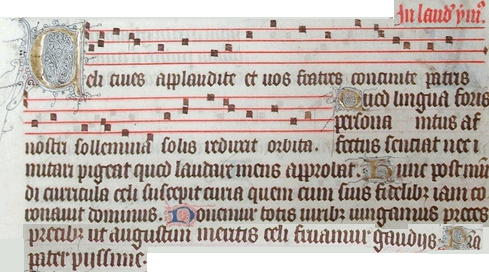 In laud' ymꝰ.
Celi ciues applaudite et uos fratres concinite patris
nostri sollemnia solis reduxit orbita. Qued lingua foris
persona intus af
fectus sentiat nec i
mitari pigeat qued laudare mens approbat. Hunc post mun
di curricula celi suscepit curia quem cum suis fidelibꝫ iam co
ronauit dominus. Donemur totis uiribꝫ iungamus preces
precibꝫ ut augustini meritis celi fruamur gaudijs. Pra
pater pijssime.